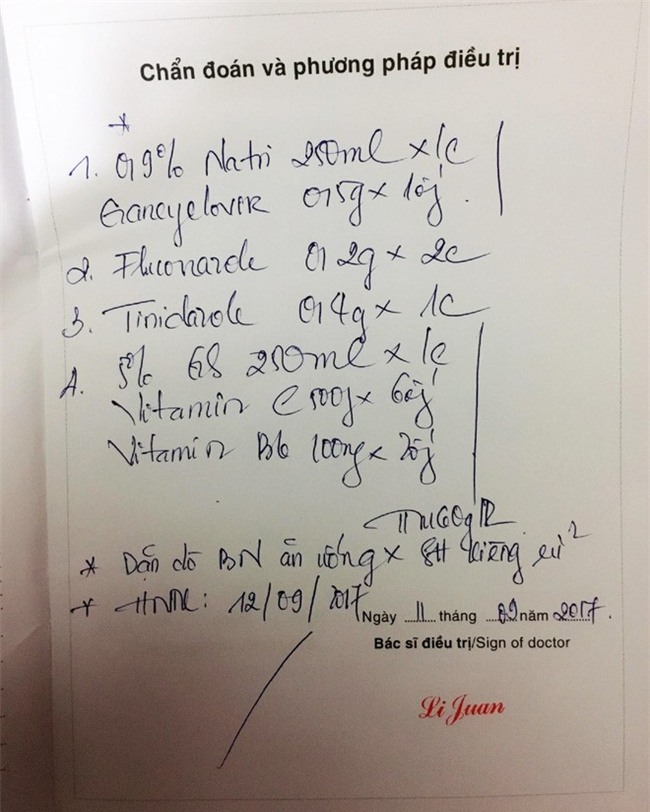 Chẩn đoán và phương pháp điều trị
*
1. 0,9% Natri 250ml x 1c
Gancyclovir 0,5g x 1ống.
2. Fluconazole 0,2g x 2c
3. Tinidazole 0,4g x 1c
4. 5% GS 250ml x 1c
Vitamin C 500g x 6ống
Vitamin B6 100mg x 2ống
* Dặn dò BN ăn uống x SH kiêng cử
* HNTK: 12/09/2017
Ngày 11 tháng 09 năm 2017.
Bác sĩ điều trị/Sign of doctor
Li Juan